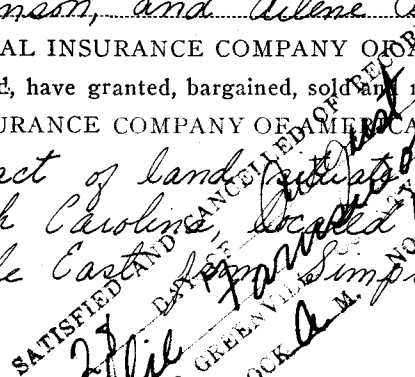 nson, and Arlene
AL INSURANCE COMPANY OF A
d, have granted, bargained, sold and r
URANCE COMPANY OF AMERICA
act of land situate
h Carolina, located
le East from Simp
SATISFIED AND CANCELLED OF RECORD
28 DAY OF August
Ollie Farnsworth
GREENVILLE COUNTY
OCK A M. NO.